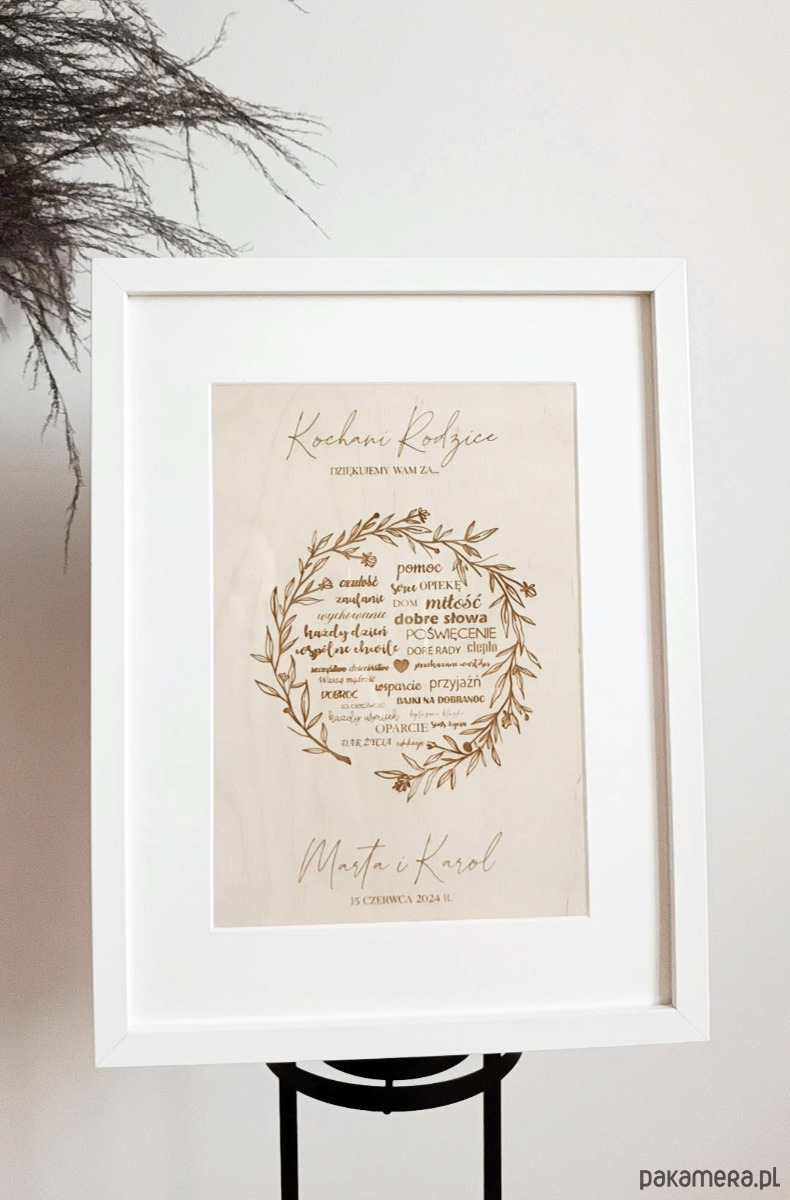 Kochani Rodzice
DZIĘKUJEMY WAM ZA...
pomoc
czułość serce OPIEKĘ
zaufanie DOM miłość
wychowanie dobre słowa
każdy dzień POŚWIĘCENIE
wspólne chwile DOBRE RADY ciepło
szczęśliwe dzieciństwo
Waszą mądrość wsparcie przyjaźń
DOBROĆ BAJKI NA DOBRANOC
za cierpliwość
każdy uśmiech
OPARCIE
DAR ŻYCIA edukację
Marta i Karol
15 CZERWCA 2024 R.
pakamera.pl